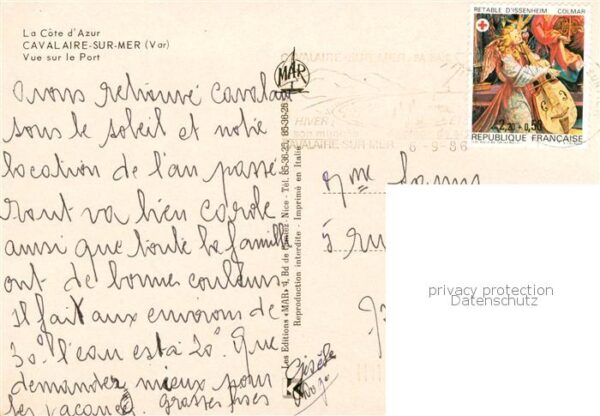 La Côte d'Azur
CAVALAIRE-SUR-MER (Var)
Vue sur le Port
Avons retrouvé Cavalaire
sous le soleil et notre
location de l'an passé
tout va bien Carole
ainsi que toute la famille
ont de bonnes couleurs
il fait aux environs de
30° l'eau est à 20°. Que
demander mieux pour
les vacances grosses bises
Gisèle
MAR
Les Editions «MAR» 4, Bd de - Nice - Tél. 85-36-21, 85-36-28
Reproduction interdite - Imprimé en Italie
CAVALAIRE-SUR-MER
HIVER
CAVALAIRE SUR MER
6-9-86
RETABLE D'ISSENHEIM COLMAR
2,20+0,50
REPUBLIQUE FRANÇAISE
Mme
5 rue
privacy protection
Datenschutz